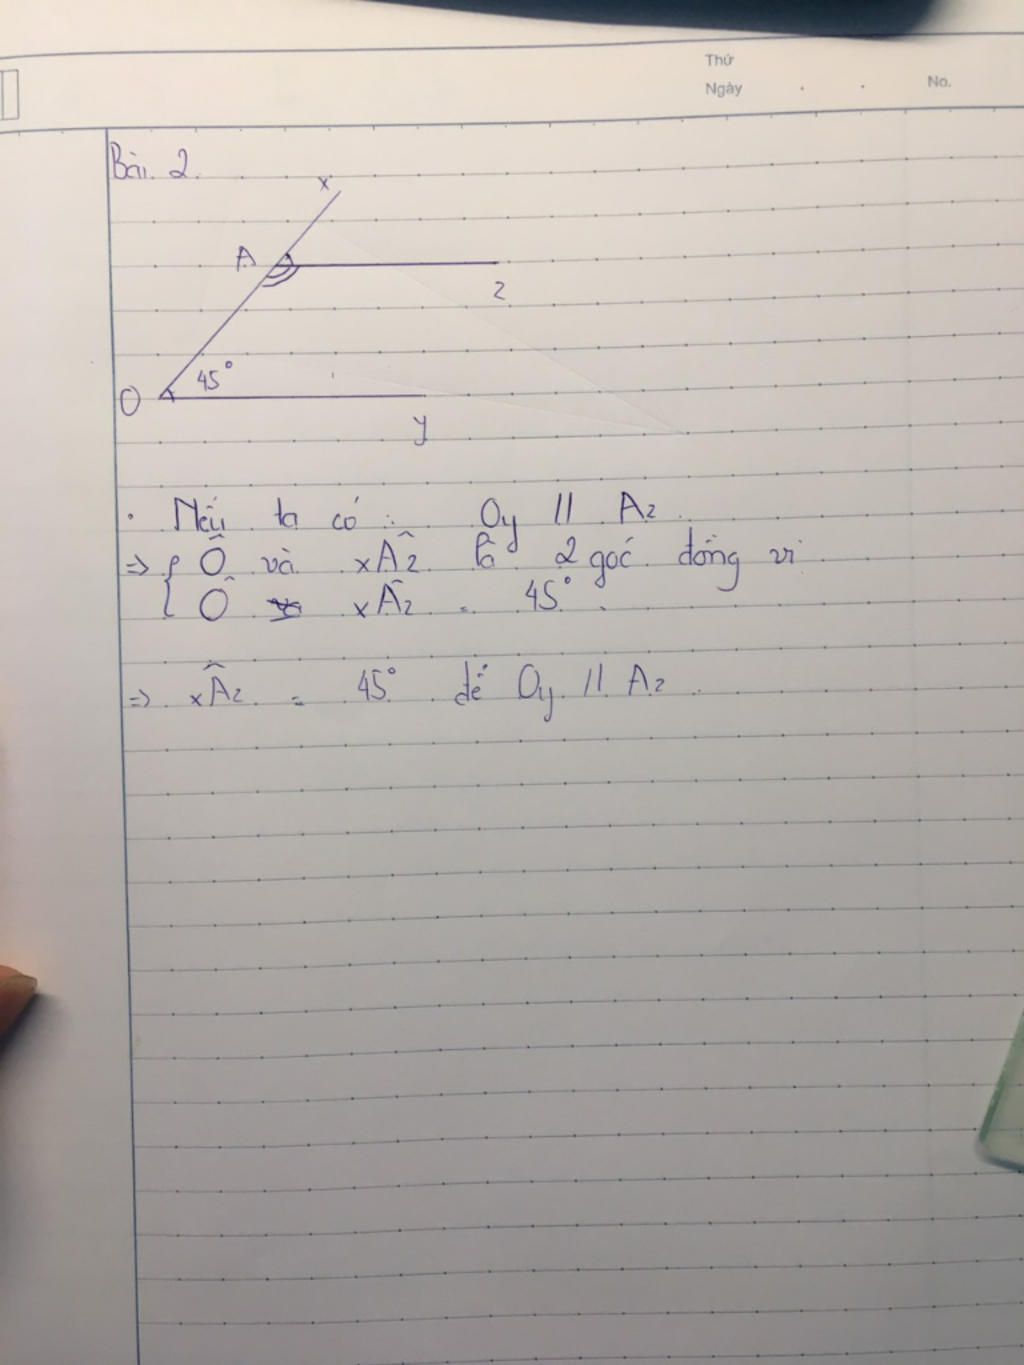 Thứ
Ngày . . No.
Bài. 2.
x
A
z
45°
O
y
. Nếu ta có : Oy // Az.
=> { Ô và xÂz là 2 góc đồng vị
Ô xÂz = 45°.
=> xÂz = 45° để Oy // Az.